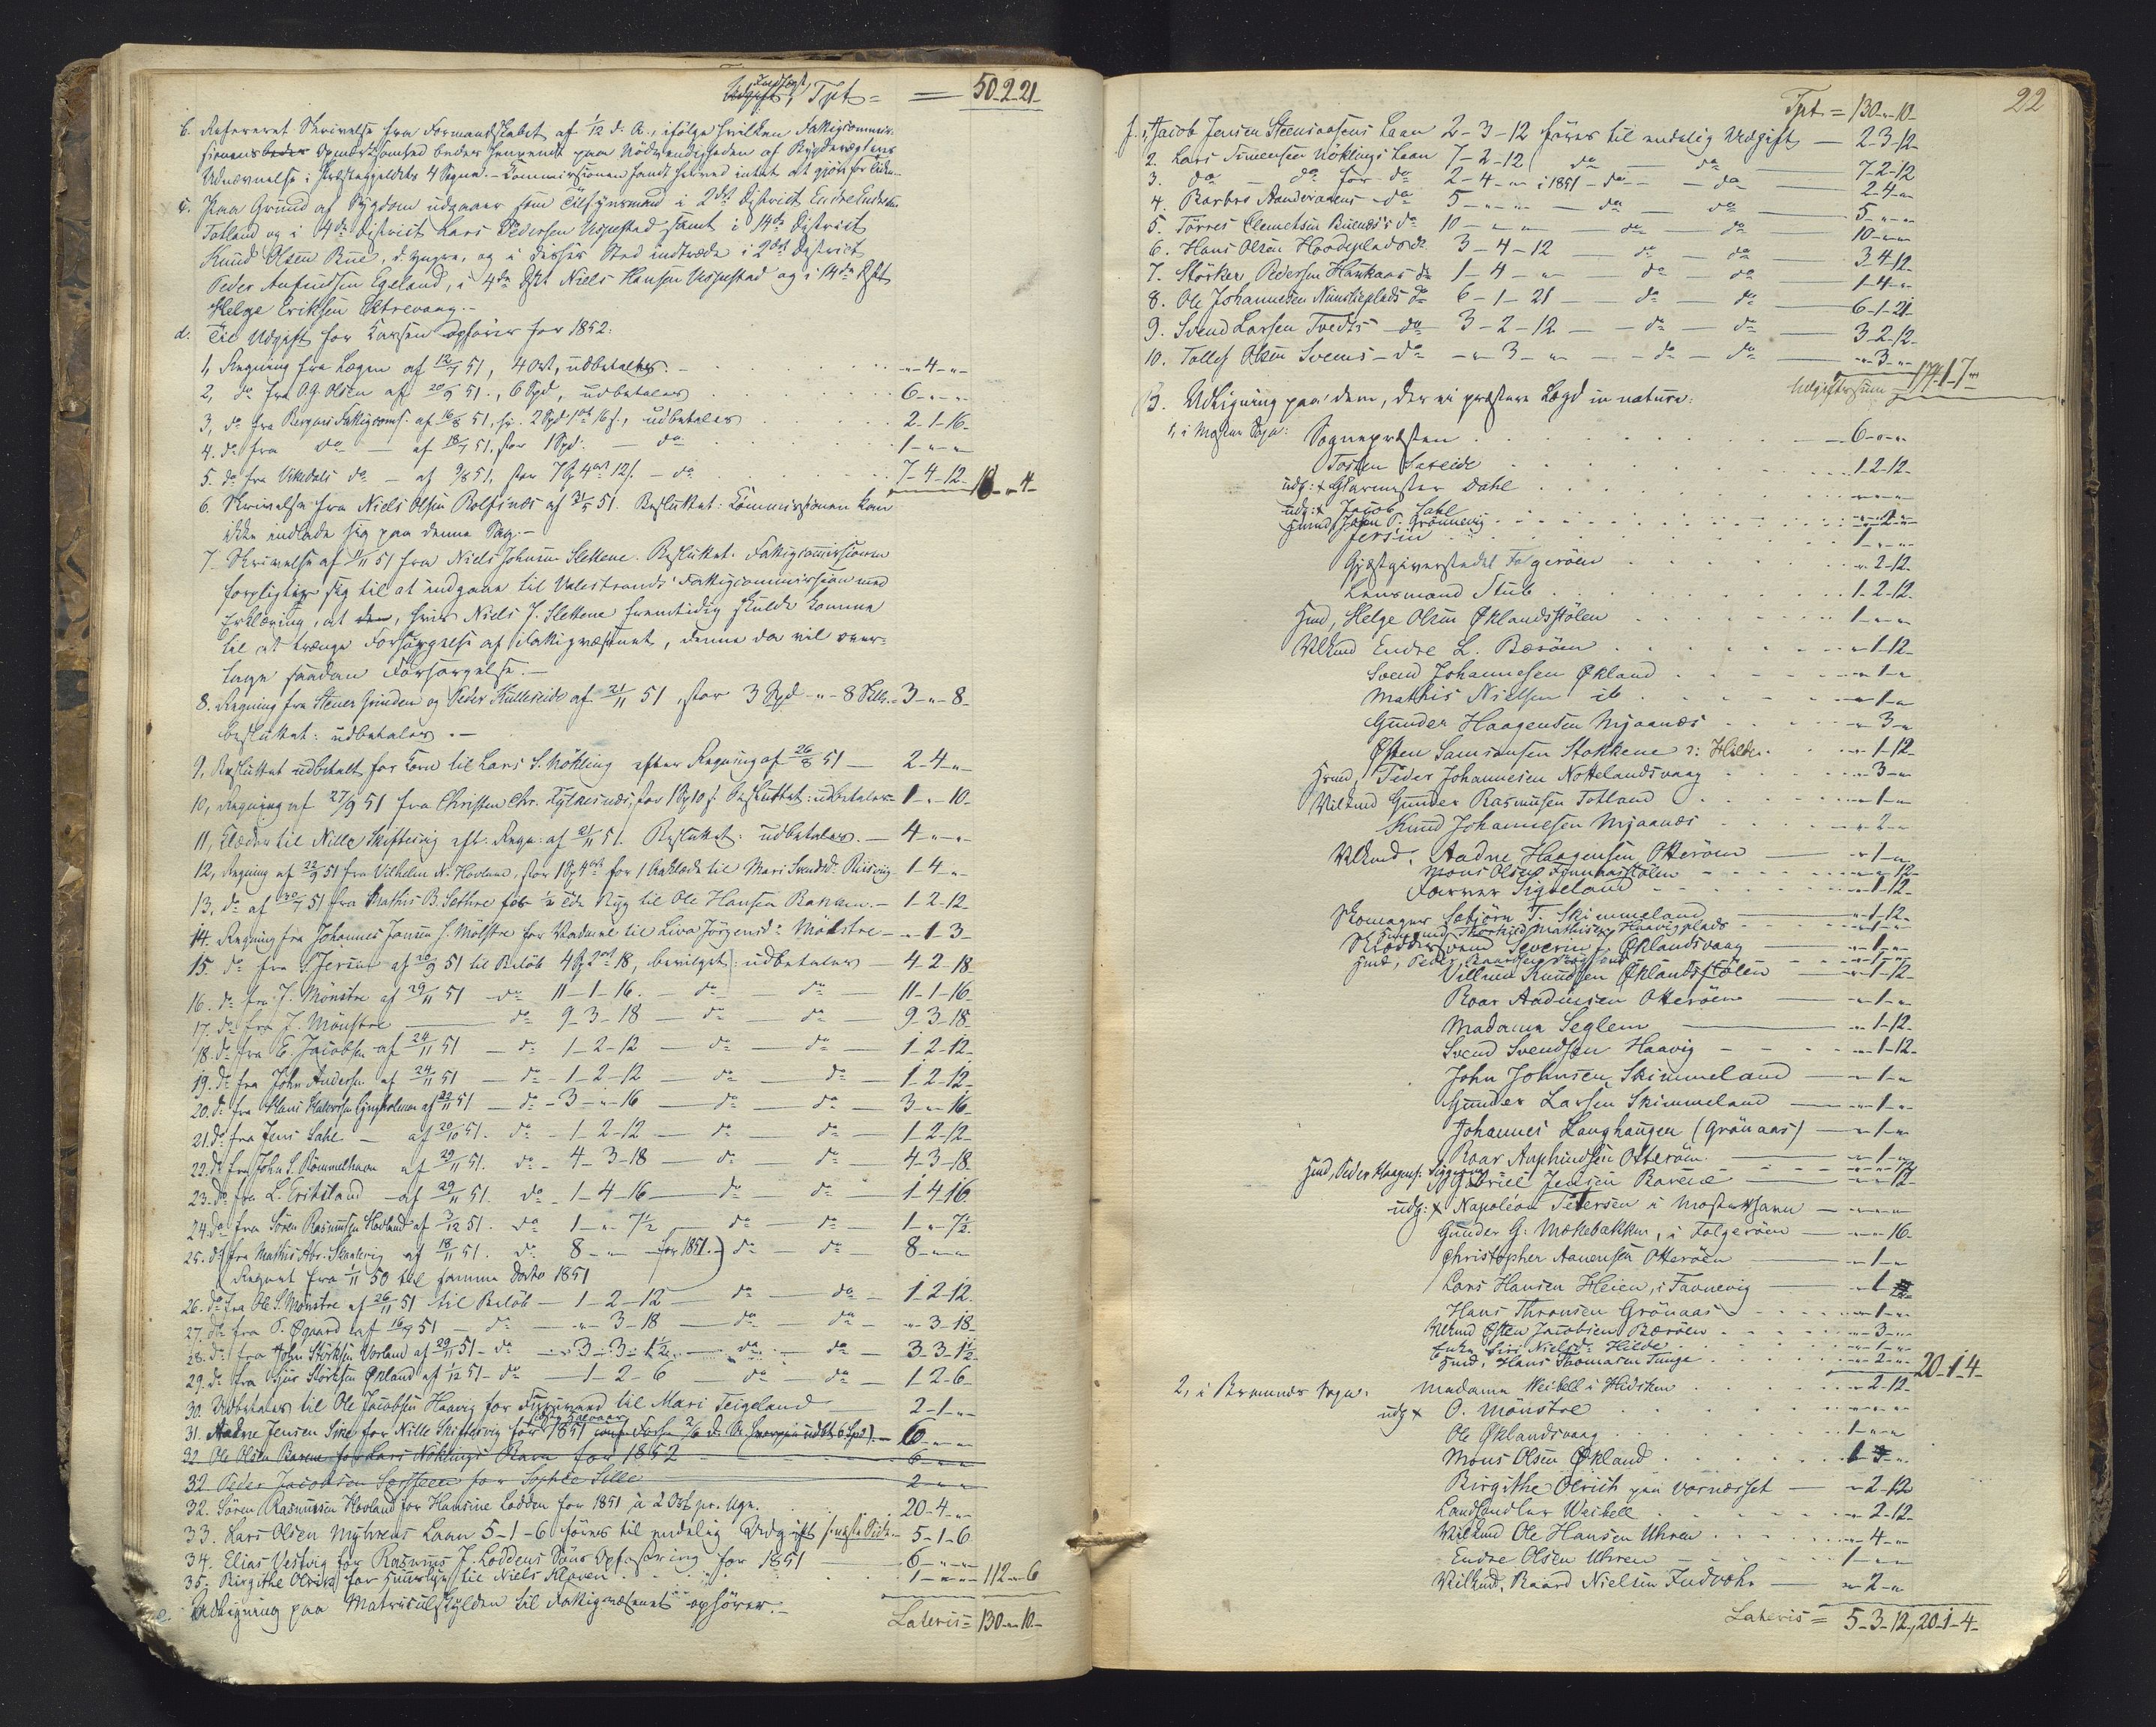 Indtægt, Tpt = 50-2-21-
b. Refereret Skrivelse fra Formandskabet af 1/12 d. A., ifølge hvilken Fattigcommis-
sionens Opmærksomhed bedes henvendt paa Nödvendigheden af Bygdevægteres
Udnævnelse i Præstegjeldets 4 Sogne. - Commissionen fandt herved intet at gjöre for Tiden.
c. Paa Grund af Sygdom udgaaer som Tilsynsmand i 2det District Endre Endresen
Totland og i 4de District Lars Pedersen Uspestad samt i 14de District
Knud Olsen Bue, d. yngre, og i disses Sted indtræde i 2det District
Peder Anfindsen Egeland, i 4de Dstkt Niels Hansen Uspestad og i 14de Dstkt
Helge Eriksen Øtrevaag. -
d. Til Udgift for Cassen opföres for 1852:
1, Regning fra Lægen af 12/7 51, 4 Ort, udbetales. -"-4-"-
2, do fra O. G. Olsen af 20/9 51., 6 Spd, udbetales 6-"-"-
3, do fra Bergens Fattigcoms. af 16/8 51, str. 2 Spd 1 ort 16 s., udbetales 2-1-16-
4. do fra do - af 18/7 51, stor 1 Spd. - do 1-"-"-
5. do fra Vikedals do - af 9/8 51, stor 7 Sp 4 ort 12 s. - do 7-4-12- 18-"-4-
6. Skrivelse fra Niels Olsen Rolfsnæs af 31/5 51. Besluttet: Commissionen kan
ikke indlade sig paa denne Sag. -
7. Skrivelse af 1/11 51 fra Niels Johnsen Slettene. Besluttet. Fattigcommissionen
forpligter sig til at indgaae til Valestrands Fattigcommission med
Erklæring, at hvis Niels J. Slettene fremtidig skulde komme
til at trænge Forsörgelse af Fattigvæsenet, denne da vil over-
tage saadan Forsörgelse. -
8. Regning fra Stener Grinden og Peder Kulleseid af 21/11 51, stor 3 Spd -"- 8 Skill. 3-"-8-
besluttet: udbetales. -
9, Besluttet udbetalt for Korn til Lars S. Nökling efter Regning af 26/8 51 - 2-4-"-
10, Regning af 27/9 51 fra Christen Chr. Fylkesnæs, stor 1 Sp 10 s. Besluttet: udbetales 1-"-10-
11, Klæder til Nille Skiftesvig eft. Regn: af 21/11 51. Besluttet: udbetales. - 4-"-"-
12, Regning af 22/9 51 fra Vilhelm N. Hovland, stor 1 Sp 4 ort for 1 Aaklæde til Mari Svendsd. Riisvig 1-4-"-
13, do af 20/7 51 fra Mathis B. Sæthre for 1/2 Tde Rug til Ole Hansen Bakken. - 1-2-12
14. Regning fra Johannes Jansen S. Mölstre for Vadmel til Liva Jörgensd: Mölstre -"-1-3-
15. do fra S. Jersin af 20/9 51 til Belöb 4 Sp 2 ort 18, bevilget: udbetales - 4-2-18-
16. do fra J. Mönstre af 29/11 51 - do 11-1-16. - do - do - 11-1-16-
17. do fra J. Mönstre - do 9-3-18 - do - do - 9-3-18-
18. do fra E. Jacobsen af 24/11 51 - do 1-2-12 - do - do - 1-2-12-
19. do fra John Andersen af 24/11 51 - do - 1-2-12 - do - do - 1-2-12-
20. do fra Hans Halvorsen Engholmen af 22/11 51 - do - 3-"-16 - do - do - 3-"-16-
21. do fra Jens Dahl - af 20/10 51. do - 1-2-12 - do - do - 1-2-12-
22. do fra John S. Rommelhavn af 29/11 51. do - 4-3-18 - do - do - 4-3-18-
23. do fra L. Eritsland - af 29/11 51. do - 1-4-16 - do - do - 1-4-16
24. do fra Sören Rasmussen Hovland af 3/12 51. do 1-"-7½ - do - do - 1-"-7½-
25. do fra Mathis Abr. Skaalevig af 18/11 51. do 8-"-" for 1851.) do - do - 8-"-"-
(Regnet fra 1/11 50 til samme Dato 1851
26. do fra Ole S. Mönstre af 26/11 51 til Belöb - 1-2-12 - do - do - 1-2-12.
27. do fra T. Øgaard af 16/9 51 - do - "-3-18 - do - do - "-3-18-
28. do fra John Störksen Vorland af 29/11 51 - do - 3-3-1½ - do - do - 3-3-1½
29. do fra Siur Störksen Økland af 1/12 51 - do - 1-2-6 - do - do - 1-2-6-
30. Udbetales til Ole Jacobsen Haavig for Huusrum til Mari Teigeland 2-1-"-
31. Aadne Jensen Sire for Nille Skiftesvig for 1851 6-"-"-
32. Ole Olsen Barene for Lars Nöklings Barn for 1852 6-"-"
32. Peder Jacobsen for Sophie Lille 2-"-"
32. Sören Rasmussen Hovland for Hansine Lodden for 1851 à 2 Ort pr. Uge. 20-4-"-
33. Lars Olsen Myhrens Laan 5-1-6 föres til endelig Udgift s. næste Side. 5-1-6
34. Elias Vestvig for Rasmus J. Loddens Söns Opfostring for 1851 6-"-"-
35. Birgithe Olrich for Huusleje til Niels Kloven 1-"-"- 112-"-6
e. Udligning paa Matriculskylden til Fattigvæsenet ophörer. -
Lateris = 130-"-10-
22
Tpt = 130-"-10-
f. 1, Jacob Jensen Steensaasens Laan 2-3-12 föres til endelig Udgift - 2-3-12-
2. Lars Simensen Nöklings Laan 7-2-12 do - do 7-2-12
3. do - do for do 2-4-"- i 1851 - do - do 2-4-"-
4. Barbro Aandervaagens - do 5-"-"- do - do 5-"-"-
5. Törres Clemetsen Buenæs's do 10-"-" - do - do 10-"-"-
6. Hans Olsen Hordeplads do 3-4-12 - do - do 3-4-12-
7. Störker Pedersen Haukaas do 1-4-"- do - do 1-4-"-
8. Ole Johannesen Nunstieplads do 6-1-21 - do - do 6-1-21-
9. Svend Larsen Tvedts - do - 3-2-12 - do - do 3-2-12-
10. Tollef Olsen Sveens - do - "-3-"- - do - do "-3-"-
Udgiftssum = 174-1-7-
B. Udligning paa dem, der ei præstere Lægd in natura:
1, i Moster Sogn: Sognepræsten 6-"-"-
Torsten Sæteide 1-2-12-
udg: x Glarmester Dahl "-"-"-
udg: x Jacob Dahl
Huusmd John P. Grönnevig "-2-"-
Jersin 1-"-"-
Gjæstgiverstedet Folgeröen "-2-12-
Lensmand Stub 1-2-12-
Hmd, Helge Olsen Øklandsstölen 1-"-"-
Vilkmd Endre L. Bæröen "-1-12-
Svend Johannesen Økland "-1-"-
Mathis Nielsen ib "-1-"-
Gunder Haagensen Mjaanæs "-3-"-
Østen Samsonsen Stokkene i: Hilde "-1-12-
Hmd, Peder Johannesen Nottelandsvaag "-3-"-
Vilkmd Gunder Rasmusen Totland "-1-"-
Knud Johannesen Mjaanæs "-2-"-
Vilkmd. Aadne Haagensen Otteröen "-1-"-
Mons Olsen "-"-12-
Farver Sigjeland "-1-12-
Skomager Sebjörn T. Skimmeland "-1-12-
Huusmd Thorkild Mathisen Haavigplads "-1-"-
Skrædder Svend Severin J. Øklandsvaag "-1-"-
Villum Knudsen Øklandsstölen "-1-12
Roar Aadnesen Otteröen "-1-"-
Madame Seglem "-1-12-
Svend Svendsen Haavig "-1-12-
John Johnsen Skimmeland "-1-"-
Gunder Larsen Skimmeland "-1-"-
Johannes Langhaugen (Grönaas) "-1-"-
Roar Anphindsen Otteröen "-1-"-
Hmd, Peder Haagens. "-"-12
Gabriel Jensen Barene "-"-12-
udg: x Napoléon Petersen i Mosterhavn "-"-"-
Gunder G. Mækebakken, i Folgeröen "-"-16-
Christopher Aanensen Otteröen "-1-"-
Lars Hansen Heien, i Favnevig "-1-
Hans Thronsen Grönaas "-1-"-
Vilkmd Østen Jacobsen Bæröen "-3-"-
Enke Siri Nielsd. Hilde "-1-"-
Hmd. Hans Thomasen Tunge "-2-"- 20-1-4-
2, i Bremnes Sogn: Madame Weibell i Hidsken "-2-12-
udg x O. Mönstre "-"-"-
Ole Øklandsvaag 1-"-"-
Mons Olsen Økland 1-
Birgithe Olrich paa Vornæsset "-2-12
Landhandler Weibell "-2-12-
Vilkmd Ole Hansen Uhren "-4-"-
Endre Olsen Uhren 1-"-"-
Vilkmd. Baard Nielsen Indvohr "-2-"-
Lateris = 5-3-12, 20-1-4-